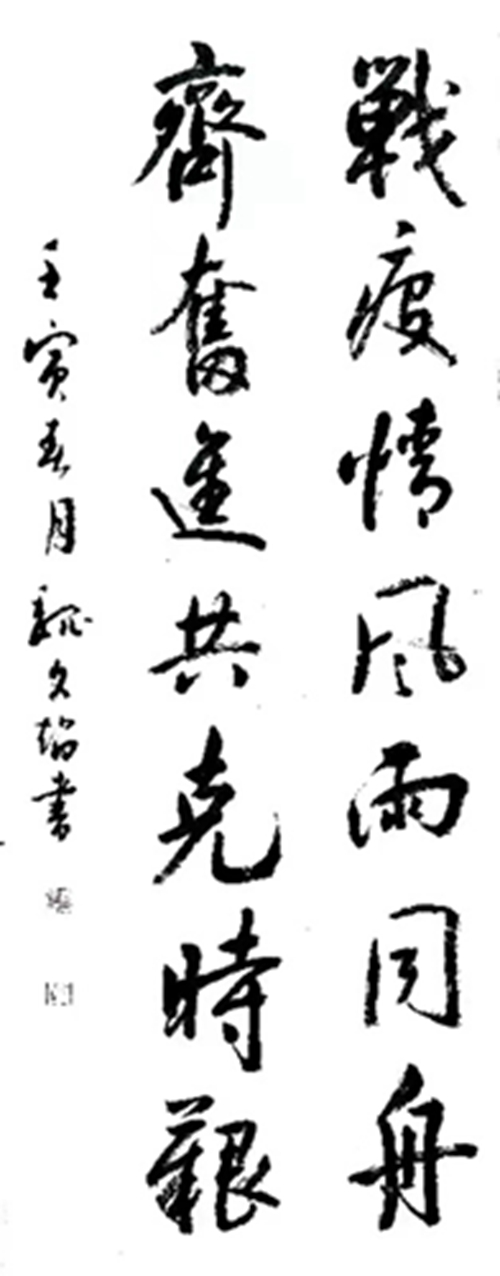 戰疫情風雨同舟
齊奮進共克時艱
壬寅春月魏久培書